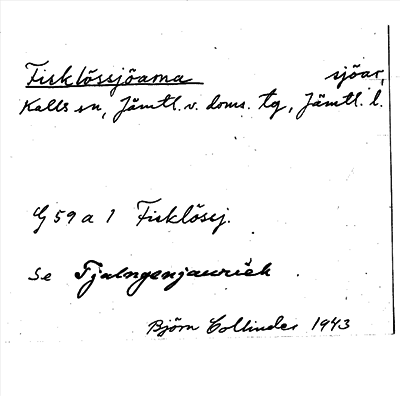 Fisklössjöarna sjöar,
Kalls sn, Jämtl. v. doms. tg, Jämtl. l.
G 59 a 1 Fisklössj.
Se Tjalngenjaurieh .
Björn Collinder 1943